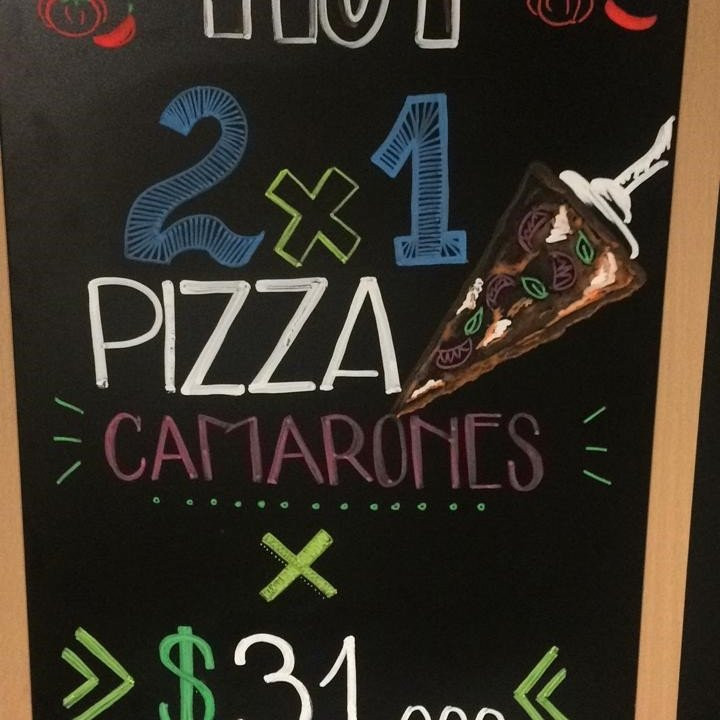 HOY
2x1
PIZZA
CAMARONES
X
$31.000